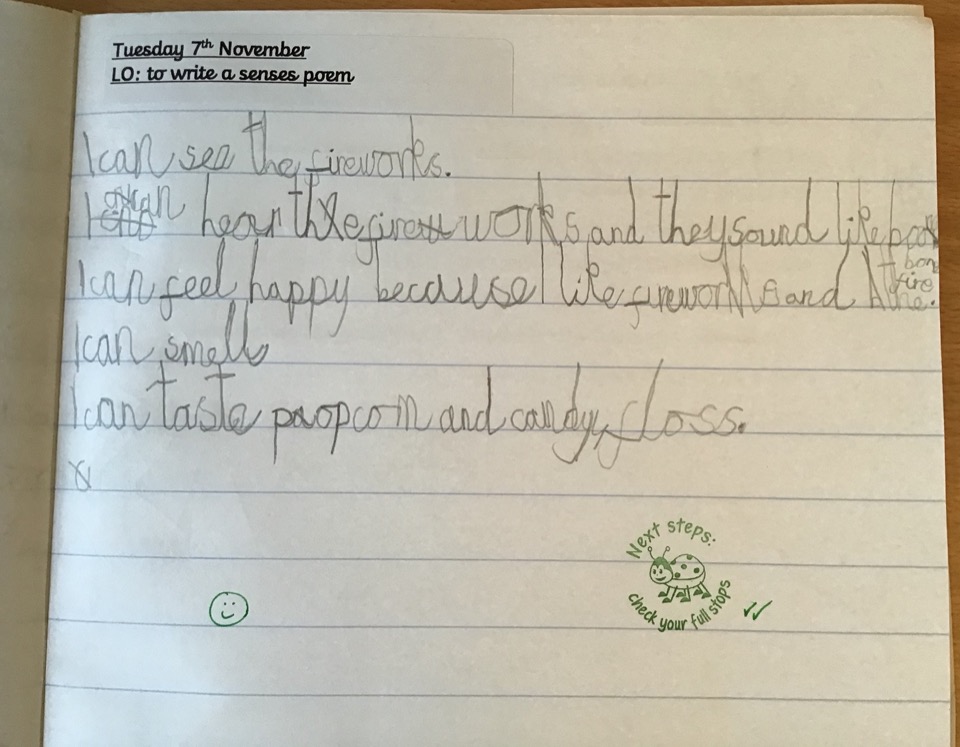 Tuesday 7th November
LO: to write a senses poem
I can see the fireworks.
I can hear the fireworks and they sound like
I can feel happy because I like fireworks and the bonfire.
I can smell
I can taste popcorn and candy floss.
Next steps:
check your full stops